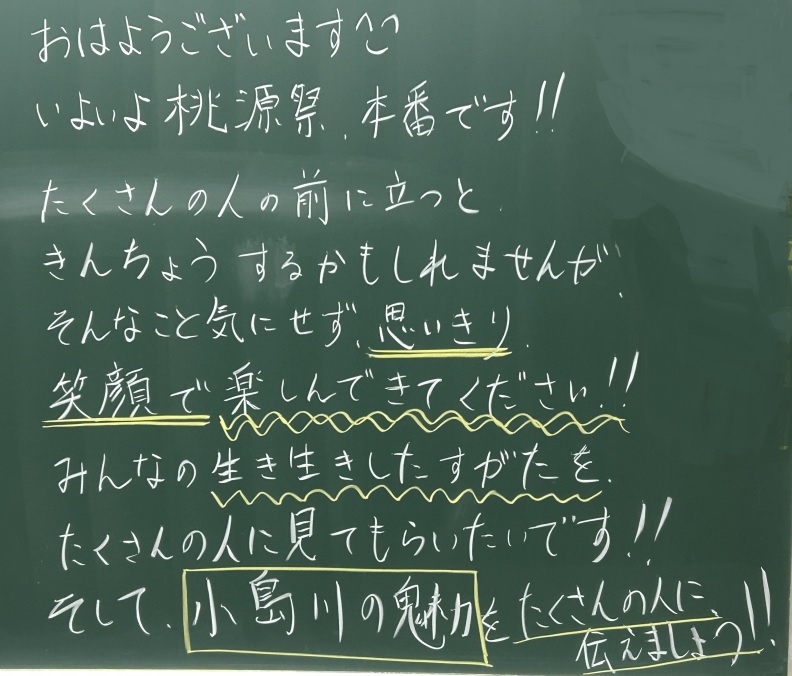 おはようございます
いよいよ桃源祭、本番です!!
たくさんの人の前に立つと、
きんちょうするかもしれませんが、
そんなこと気にせず、思いきり、
笑顔で楽しんできてください!!
みんなの生き生きしたすがたを、
たくさんの人に見てもらいたいです!!
そして、小島川の魅力をたくさんの人に、
伝えましょう!!